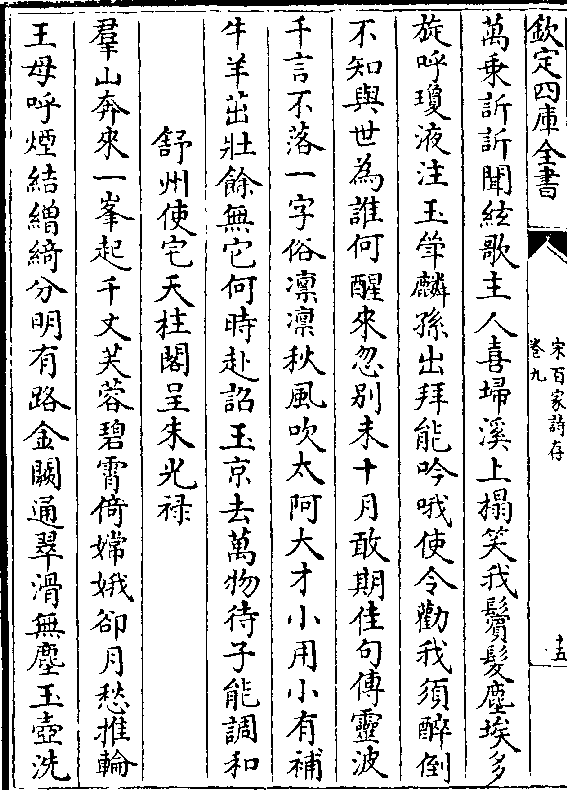 欽定四庫全書
宋百家詩存
卷九
十五
萬乗訢訢聞絃歌主人喜埽溪上榻笑我鬢髮塵埃多
旋呼瓊液注玉斝麟孫出拜能吟哦使令勸我須醉倒
不知與世為誰何醒來忽别未十月敢期佳句傳靈波
千言不落一字俗凛凛秋風吹太阿大才小用小有補
牛羊茁壯餘無它何時赴詔玉京去萬物待子能調和
舒州使宅天柱閣呈朱光禄
羣山奔來一峯起千丈芙蓉碧霄倚嫦娥卻月愁推輪
王母呼煙結繒綺分明有路金闕通翠滑無塵玉壺洗